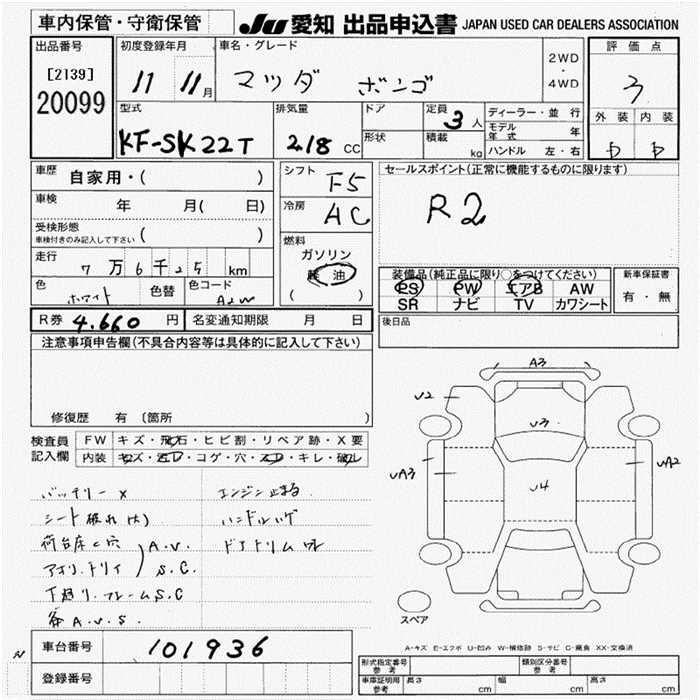 車内保管・守衛保管
JU 愛知 出品申込書 JAPAN USED CAR DEALERS ASSOCIATION
出品番号
[2139]
20099
初度登録年月
11 11月
車名・グレード
マツダ ボンゴ
2WD
・
4WD
評価点
3
外装 内装
D D
型式
KF-SK22T
排気量
2.18 CC
ドア
形状
定員
3人
積載
kg
ディーラー・並行
モデル年式 年
ハンドル 左・右
車歴
自家用・( )
車検
年 月( 日)
受検形態
車検付きのみ記入して下さい ( )
走行
7万6千25 km
色
ホワイト
色替
色コード
A2W
シフト
F5
冷房
AC
燃料
ガソリン
軽油
( )
セールスポイント(正常に機能するものに限ります)
R2
装備品(純正品に限り○をつけてください)
PS PW エアB AW
SR ナビ TV カワシート
新車保証書
有・無
後日品
R券 4.660 円
名変通知期限 月 日
注意事項申告欄(不具合内容等は具体的に記入して下さい)
修復歴 有 〔箇所 〕
検査員
記入欄
FW キズ・飛石・ヒビ割・リペア跡・X要
内装 キズ・汚レ・コゲ・穴・スレ・キレ・破レ
バッテリー X
シート破れ(大)
荷台床と穴
アオリ.トリイ
A.V.
S.C.
下廻り.フレームS.C
各A.V.S.
エンジン止まる
ハンドルハゲ
ドアトリムワレ
A3
U2
U3
UA3
U4
UA2
スペア
A-キズ E-エクボ U-凹み W-補修跡 S-サビ C-腐食 XX-交換済
車台番号
101936
登録番号
形式指定番号
参考
類別区分番号
参考
車庫証明用
参考
長さ cm
幅 cm
高さ cm